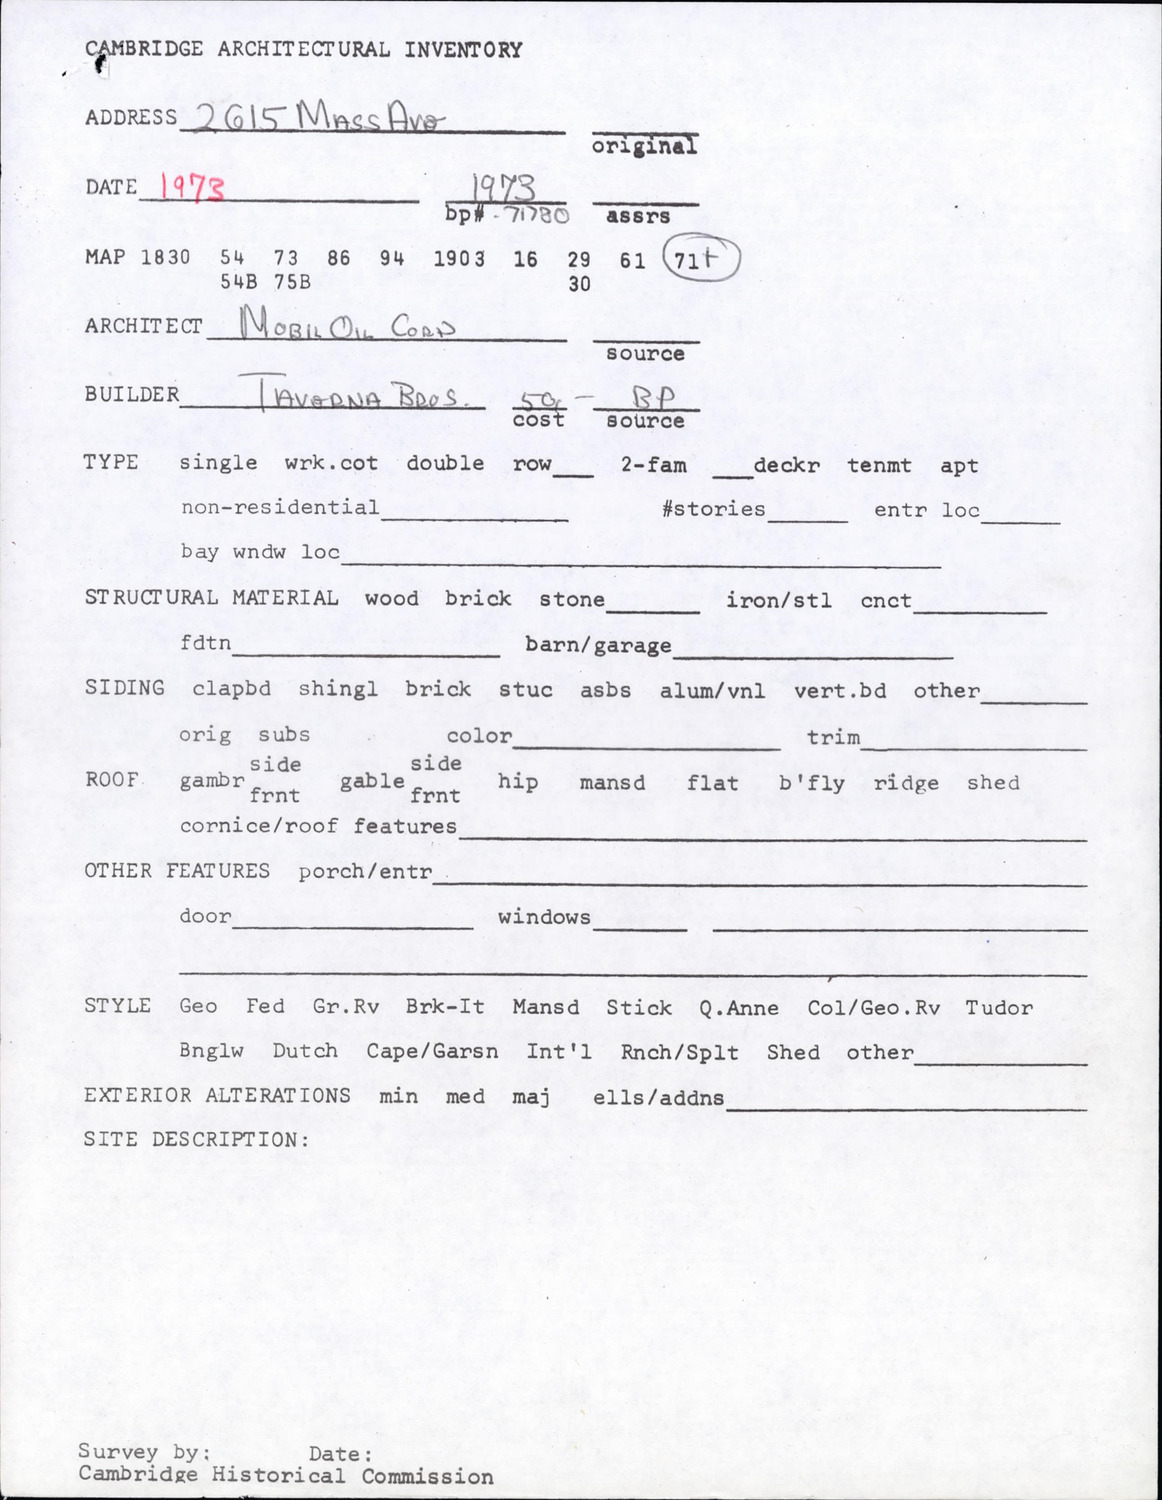 CAMBRIDGE ARCHITECTURAL INVENTORY
ADDRESS 2615 Mass Ave
original
DATE 1973 1973
bp# - 71780 assrs
MAP 1830 54 73 86 94 1903 16 29 61 71+
54B 75B 30
ARCHITECT Mobil Oil Corp
source
BUILDER Taverna Bros. - BP
cost source
TYPE single wrk.cot double row___ 2-fam ___deckr tenmt apt
non-residential #stories entr loc
bay wndw loc
STRUCTURAL MATERIAL wood brick stone iron/stl cnct
fdtn barn/garage
SIDING clapbd shingl brick stuc asbs alum/vnl vert.bd other
orig subs color trim
side side
ROOF gambr gable hip mansd flat b'fly ridge shed
frnt frnt
cornice/roof features
OTHER FEATURES porch/entr
door windows
STYLE Geo Fed Gr.Rv Brk-It Mansd Stick Q.Anne Col/Geo.Rv Tudor
Bnglw Dutch Cape/Garsn Int'l Rnch/Splt Shed other
EXTERIOR ALTERATIONS min med maj ells/addns
SITE DESCRIPTION:
Survey by: Date:
Cambridge Historical Commission